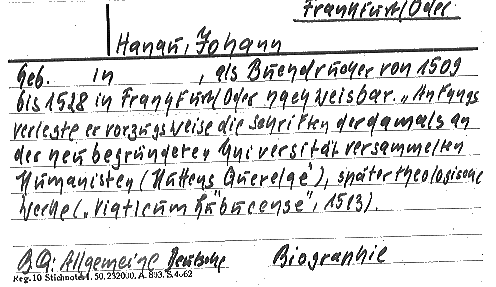 Frankfurt/Oder
Hanau, Johann
Geb. in , als Buchdrucker von 1509
bis 1528 in Frankfurt/Oder nachweisbar. „Anfangs
verlegte er vorzugsweise die Schriften der damals an
der neubegründeten Universität versammelten
Humanisten (Huttens Querelae"), später theologische
Werke („Viaticum Lubucense", 1513).
B.Q: Allgemeine Deutsche Biographie
Reg. 10 Stichnote 1. 50. 232000. A. 893. S. 4062